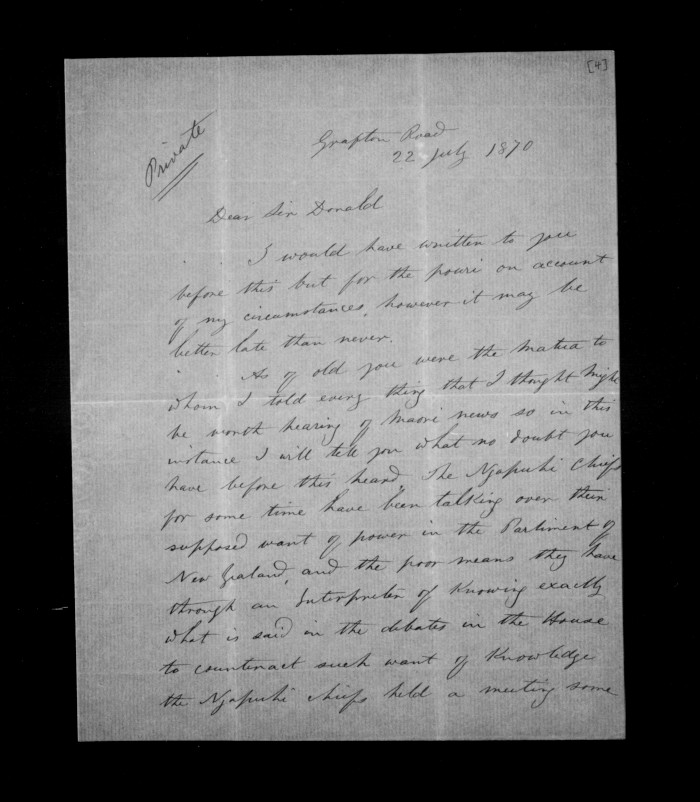 [4]
Private
Grafton Road
22 July 1870
Dear Sir Donald
I would have written to you
before this but for the pouri on account
of my circumstances, however it may be
better late than never.
As of old you were the matua to
whom I told every thing that I thought might
be worth hearing of Maori news so in this
instance I will tell you what no doubt you
have before this heard, The Ngapuhi chiefs
for some time have been talking over their
supposed want of power in the Parliment of
New Zealand, and the poor means they have
through an Interpreter of Knowing exactly
what is said in the debates in the House
to counteract such want of Knowledge
the Ngapuhi chiefs held a meeting some